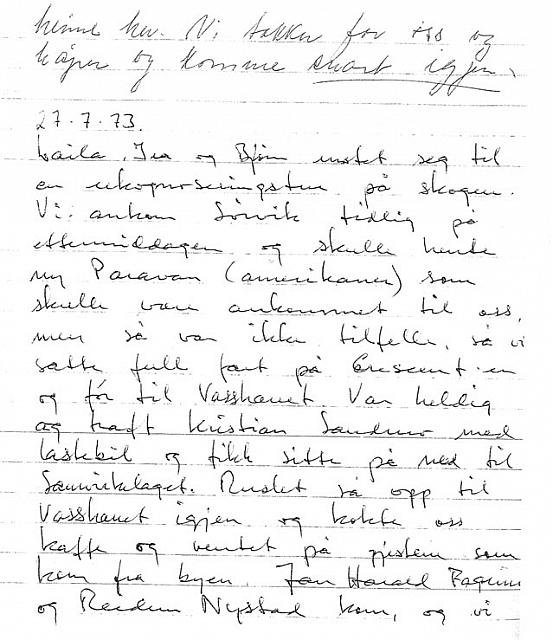 hinne her. Vi takker for oss og
håper og komme snart igjen.
27.7.73.
Laila, Iva og Bjørn rustet seg til
en rekognoseringstur på skogen.
Vi ankom Sørvik tidlig på
ettermiddagen og skulle hente
ny Paravan (amerikaner) som
skulle vare ankommet til oss,
men så var ikke tilfelle, så vi
satte full fart på Crescent-en
og fór til Vasshauet. Var heldig
og traff Kristian Sandmo med
lastebil og fikk sitte på ned til
Sørvikelaget. Ruslet så opp til
Vasshauet igjen og kokte oss
kaffe og ventet på gjestene som
kom fra byen. Jan Harald
og Reidun Nystad kom, og vi